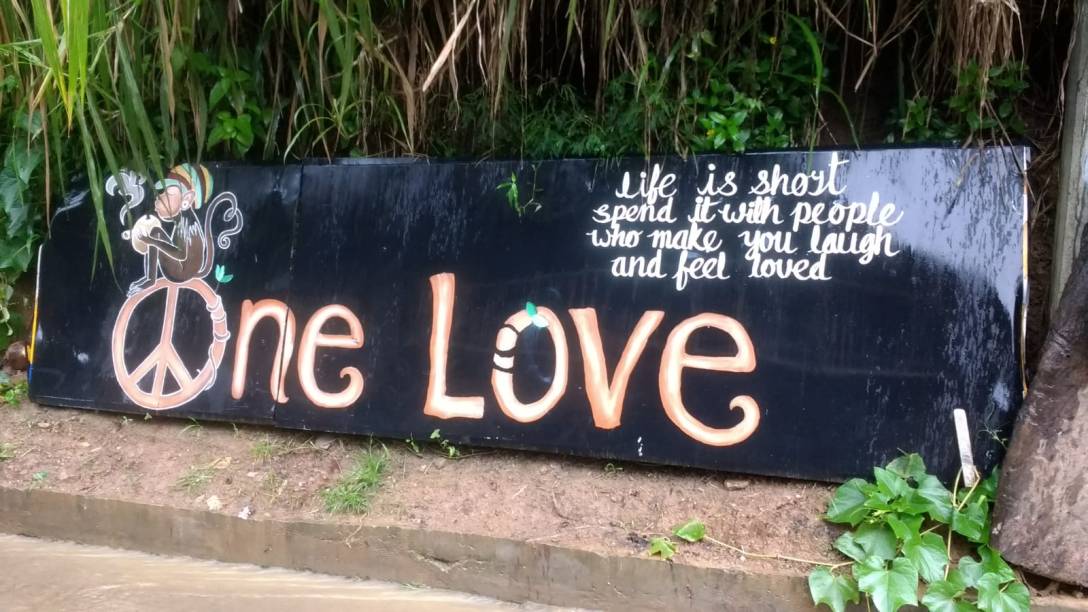 Life is short
spend it with people
who make you laugh
and feel loved
One Love